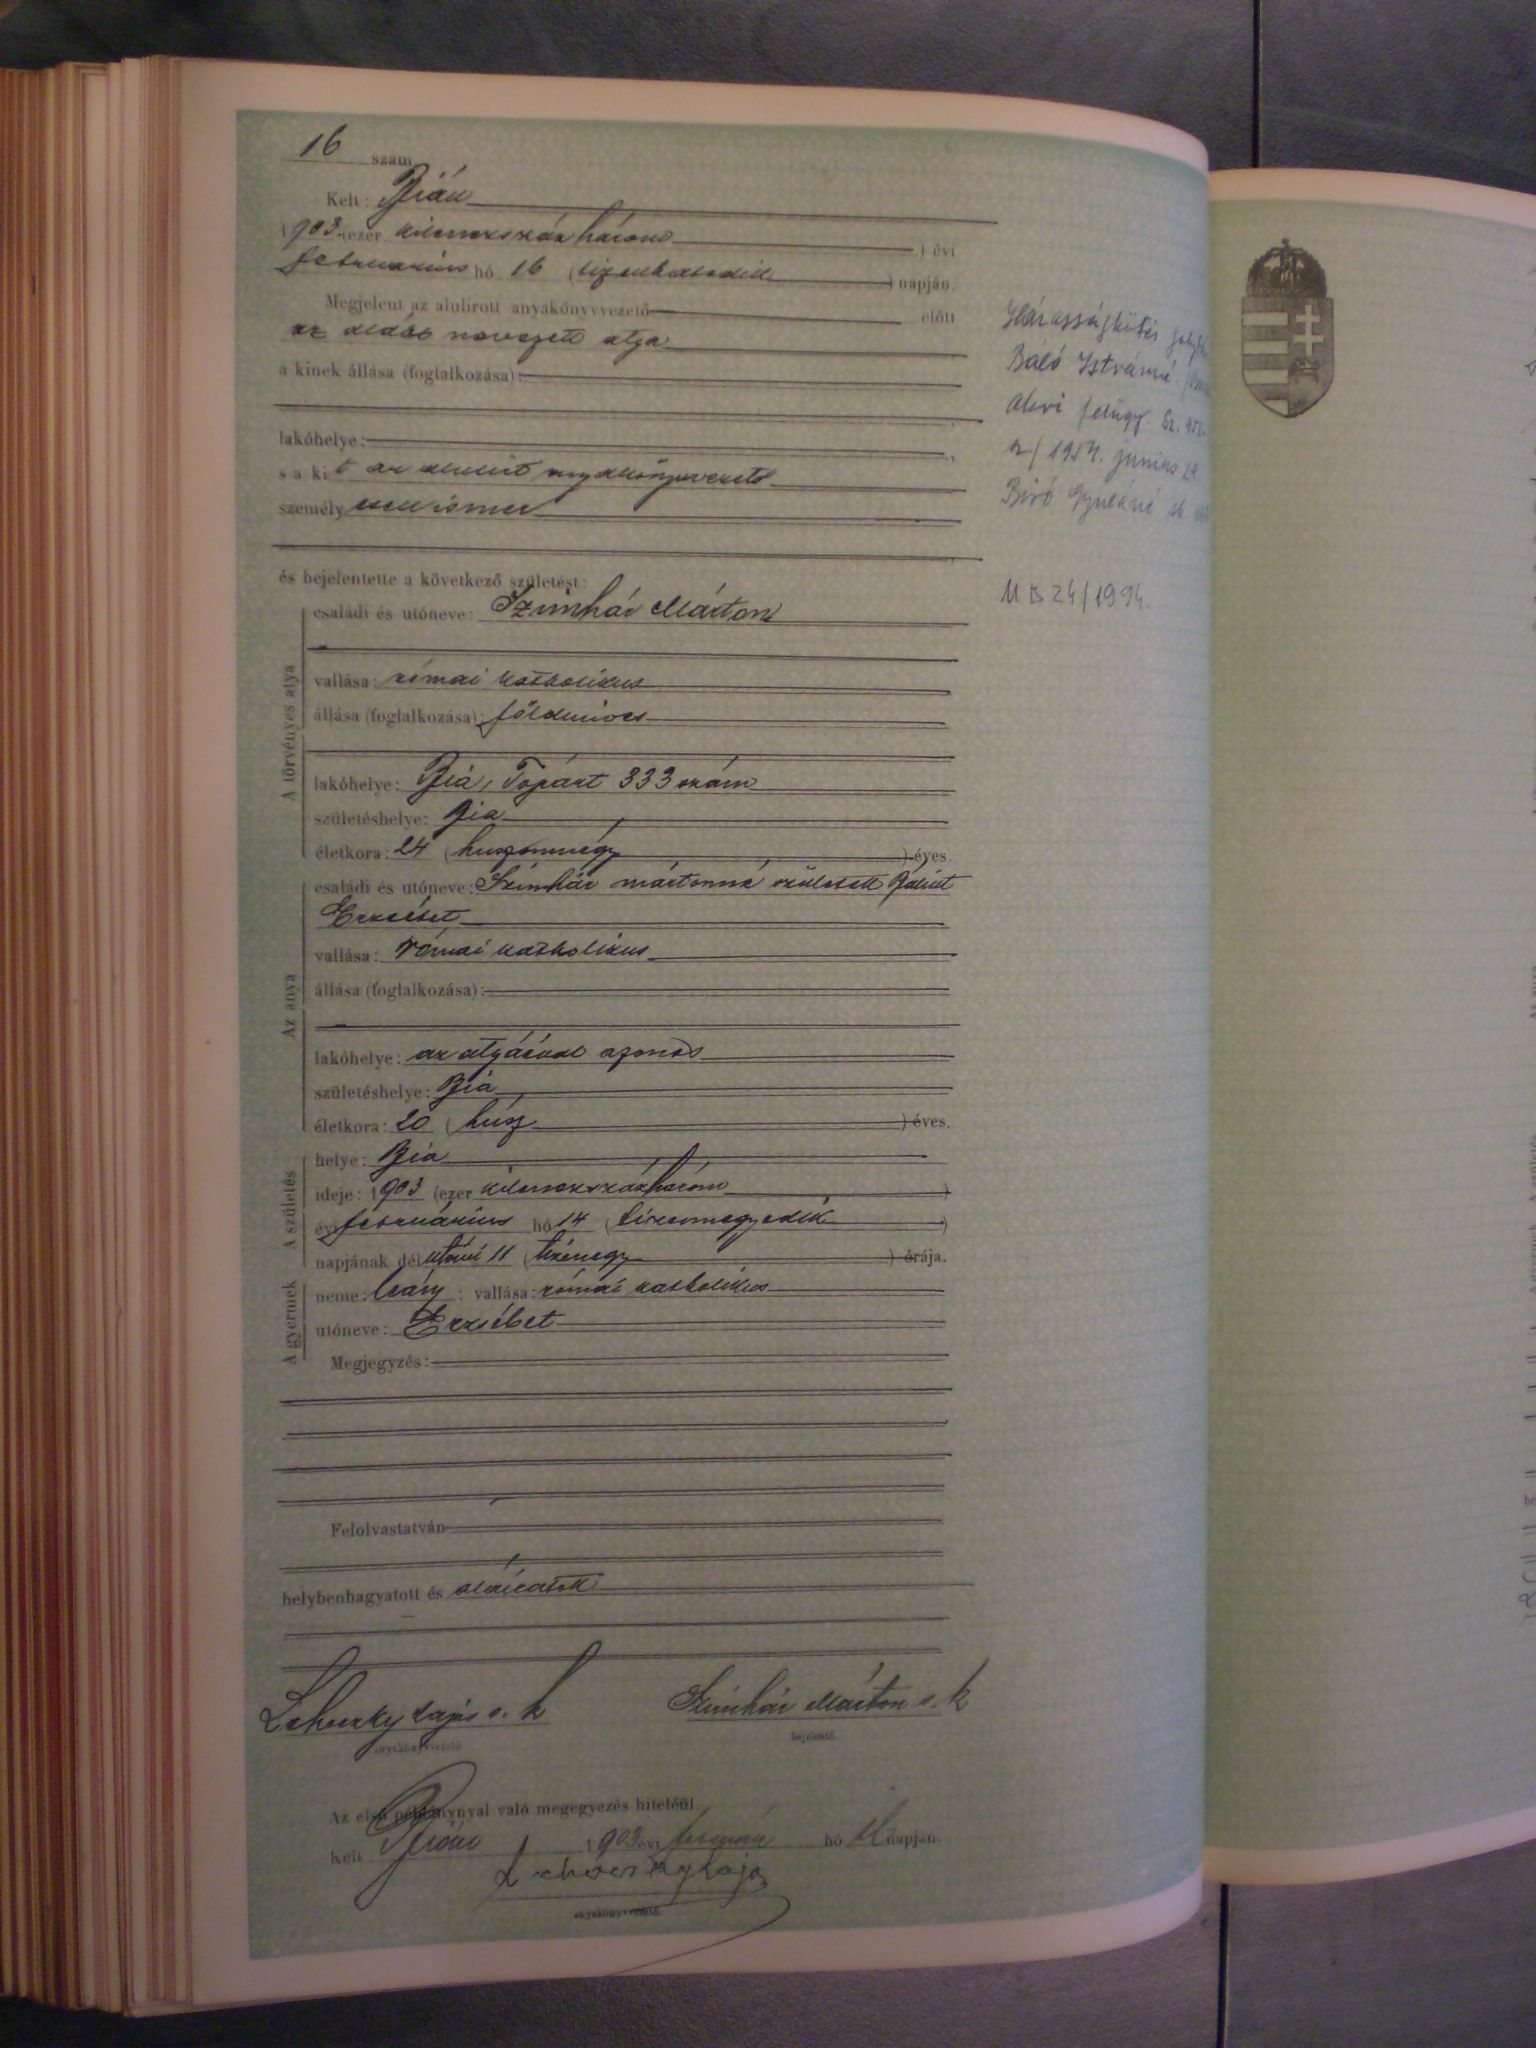 16 szám
Kelt: Bián
1903 (ezer kilenczszáz három ) évi
februárius hó 16 (tizenhatodik ) napján.
Megjelent az alulirott anyakönyvvezető előtt
az alább nevezett atya
a kinek állása (foglalkozása):
lakóhelye:
s a kit az alulirt anyakönyvvezető
személyesen ismer
és bejelentette a következő születést:
A törvényes atya
családi és utóneve: Szinhár Márton
vallása: római katholikus
állása (foglalkozása): földmives
lakóhelye: Bia, Tópart 333 szám
születéshelye: Bia
életkora: 24 (huszonnégy ) éves.
Az anya
családi és utóneve: Szinhár Mártonné született Bálint
Erzsébet
vallása: római katholikus
állása (foglalkozása):
lakóhelye: az atyáéval azonos
születéshelye: Bia
életkora: 20 (húsz ) éves.
A születés
helye: Bia
ideje: 1903 (ezer kilenczszázhárom )
évi februárius hó 14 (tizennegyedik )
napjának délutáni 11 (tizenegy ) órája.
A gyermek
neme: leány; vallása: római katholikus
utóneve: Erzsébet
Megjegyzés:
Felolvastatván
helybenhagyatott és aláiratott
Lehoczky Lajos s. k Szinhár Márton s. k
anyakönyvvezető bejelentő.
Az első példánynyal való megegyezés hiteléül
Kelt Bián 1903 évi február hó napján.
Lehoczky Lajos
anyakönyvvezető.
Házasságkötés
Báló Istvánné
felügy. Sz.
1954. június 29
Biró Gyuláné sk.
24/1994.